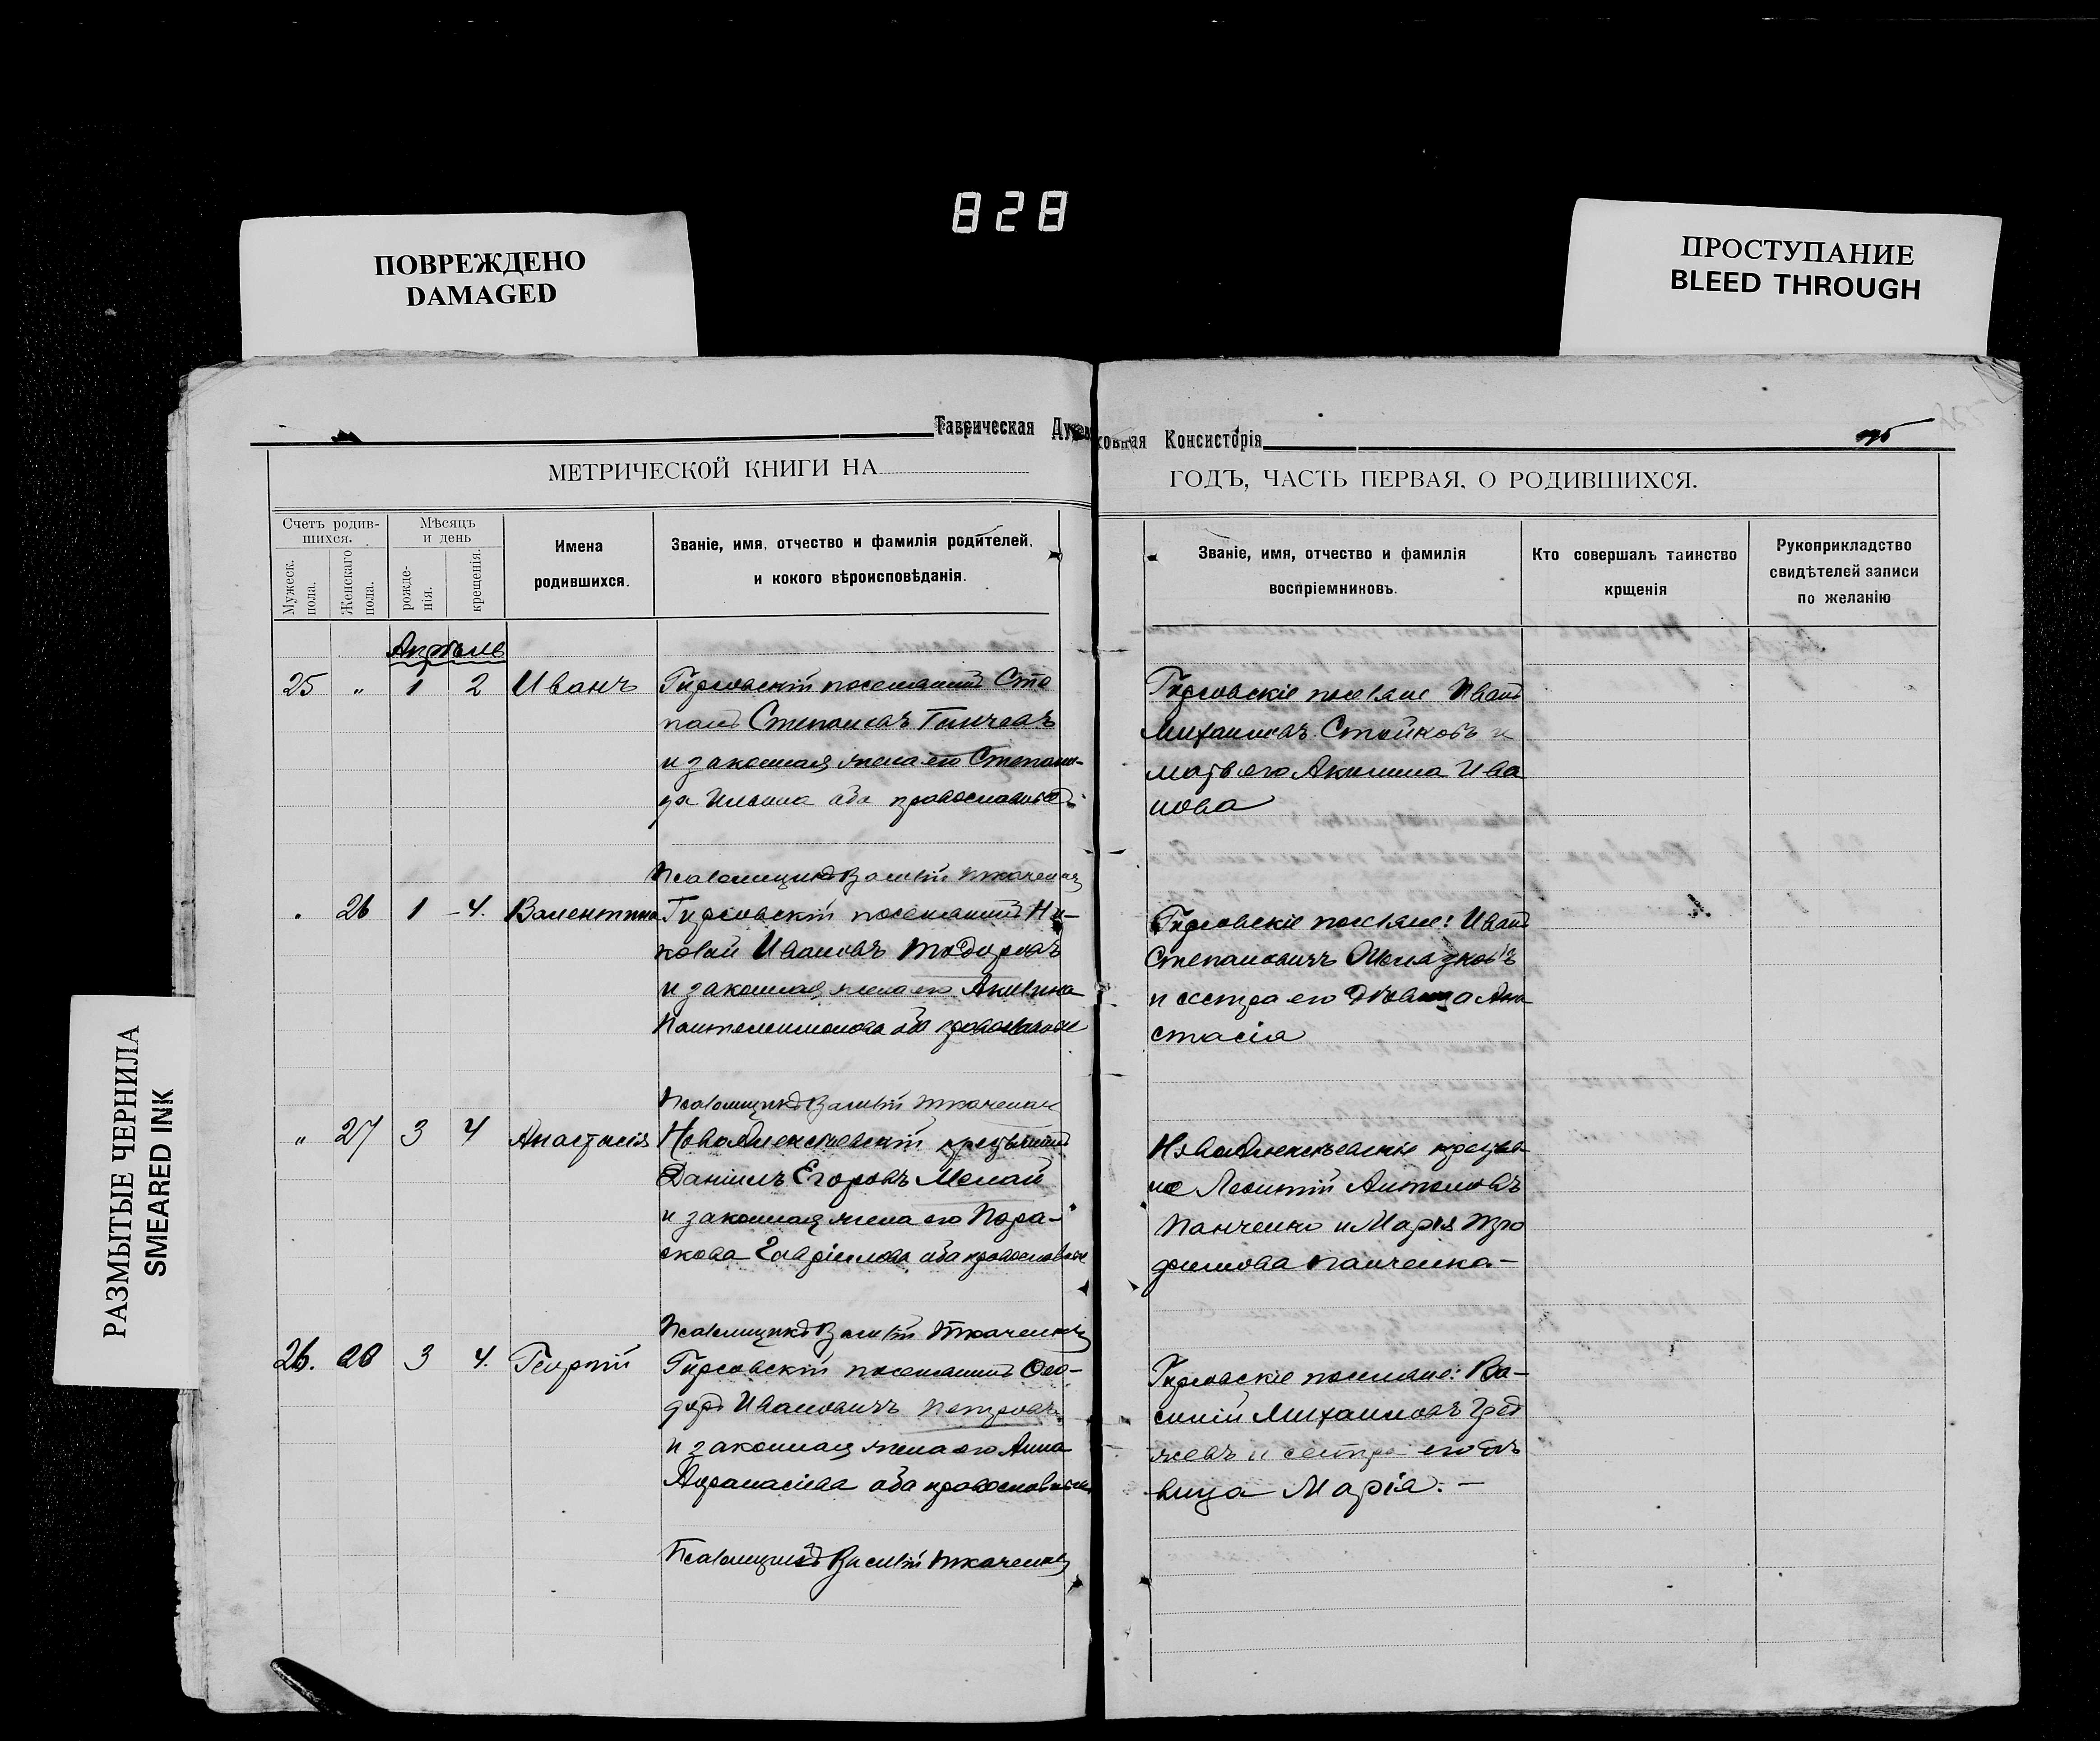 828
ПОВРЕЖДЕНО
DAMAGED
ПРОСТУПАНИЕ
BLEED THROUGH
РАЗМЫТЫЕ ЧЕРНИЛА
SMEARED INK
Таврическая Духов
ховная Консисторія
МЕТРИЧЕСКОЙ КНИГИ НА
ГОДЪ, ЧАСТЬ ПЕРВАЯ, О РОДИВШИХСЯ.
Счетъ родив-
шихся.
Мужеск.
пола.
Женскаго
пола.
Мѣсяцъ
и день
рожде-
нія.
крещенія.
Имена
родившихся.
Званіе, имя, отчество и фамилія родителей,
и кокого вѣроисповѣданія.
Званіе, имя, отчество и фамилія
воспріемниковъ.
Кто совершалъ таинство
крщенія
Рукоприкладство
свидѣтелей записи
по желанію
Апрѣль
25 " 1 2 Иванъ
Гирсовскій поселянинъ Сте
панъ Степановъ Ганчевъ
и законная жена его Степани-
да Ильина оба православные
Гирсовскіе поселяне Иванъ
Михаиловъ Стойковъ и
мать его Акилина Ива
нова
Псаломщикъ Василій Ткаченко
26 1 4. Валентина
Гирсовскій поселянинъ Ни-
колай Ивановъ Тодоровъ
и законная жена его Акилина
Пантелеимонова оба православные
Гирсовскіе поселяне: Иванъ
Степановичъ
и сестра его дѣвица Ана
стасія
Псаломщикъ Василій Ткаченко
" 27 3 4 Анастасія
НовоАлексѣевскій крестьянинъ
Даніилъ Егоровъ Мелай
и законная жена его Пара-
скева Гавріилова оба православные
НовоАлексѣевскіе крестья
не Леонтій Антоновъ
Панченко и Марія Тро
фимова Панченка-
Псаломщикъ Василій Ткаченко
26. 3 4. Георгій
Гирсовскій поселянинъ Ѳео-
доръ Ивановичъ Петровъ
и законная жена его Анна
Афанасіева оба православные
Гирсовскіе поселяне: Ва-
силій Михаиловъ
и сестра его дѣ
вица Марія. -
Псаломщикъ Василій Ткаченко